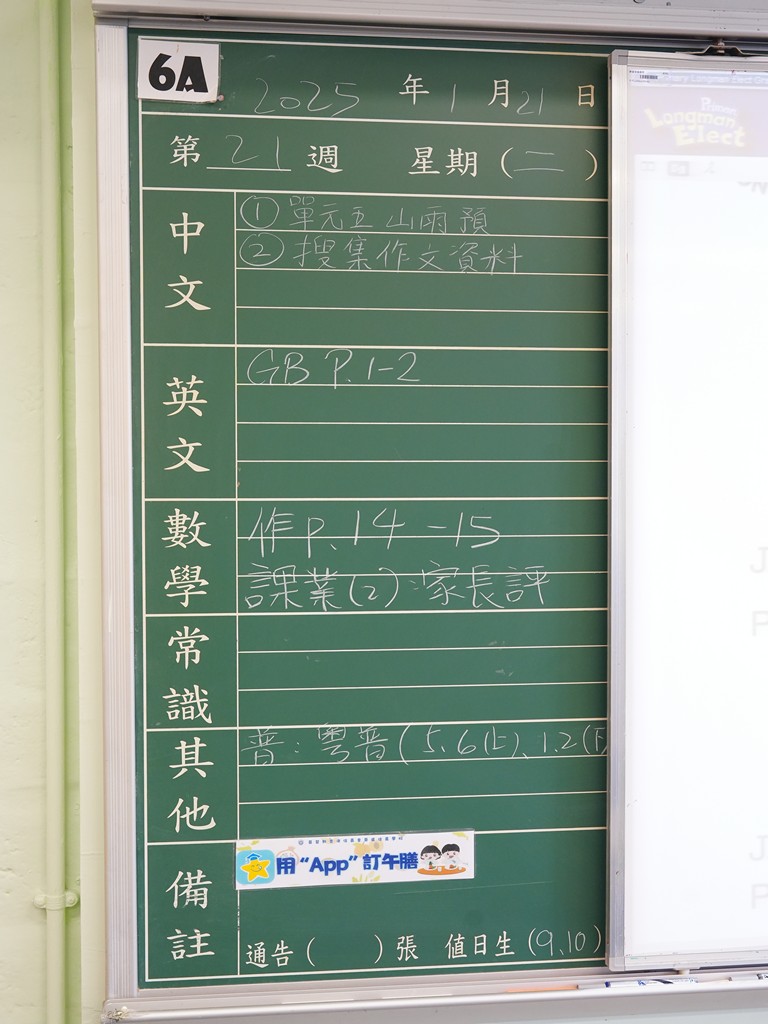 6A
2025 年 1 月 21 日
第 21 週 星期 (二)
中文
① 單元五 山雨預
② 搜集作文資料
英文
GB P.1-2
數學
作P.14-15
課業(2) 家長評
常識
其他
普：粵普(5.6(上)、1.2(下)
備註
用“App”訂午膳
通告 ( ) 張 值日生 (9.10)
Longman
Elect